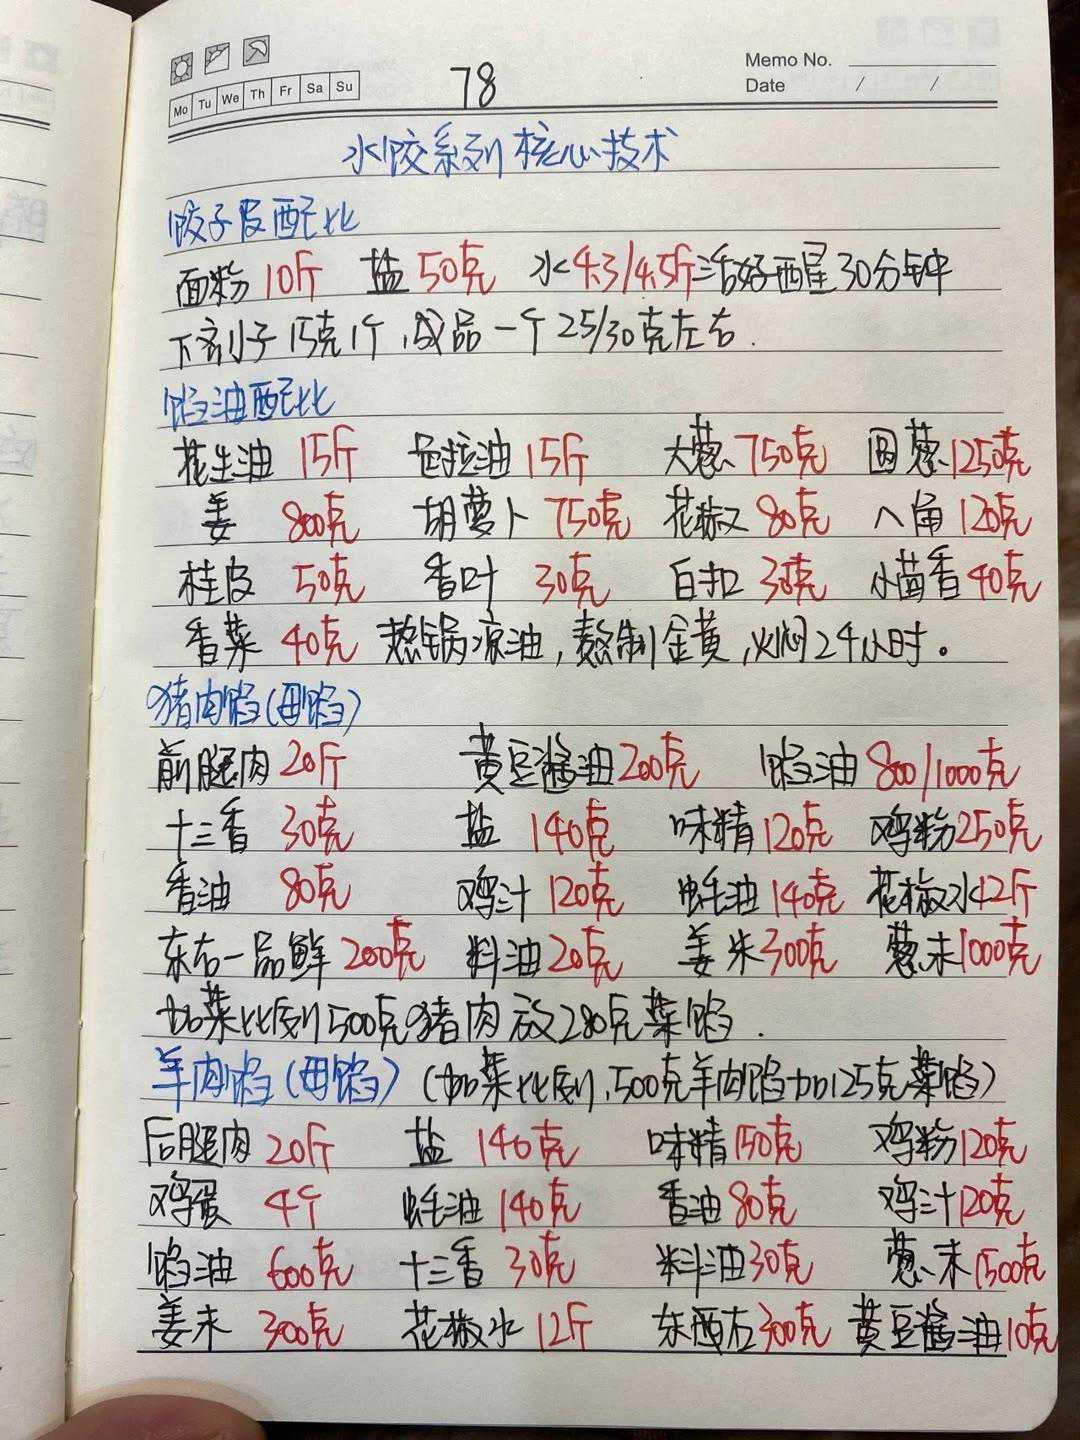 Memo No.
Mo Tu We Th Fr Sa Su
Date / /
78
水饺系列核心技术
饺子皮配比
面粉10斤 盐50克 水4.3/4.5斤活好醒30分钟
下剂子15克1个,成品一个25/30克左右.
馅油配比
花生油 15斤 色拉油15斤 大葱750克 圆葱1250克
姜 800克 胡萝卜 750克 花椒 80克 八角 120克
桂皮 50克 香叶 30克 白扣 30克 小茴香40克
香菜 40克 热锅凉油,熬制金黄,火焖24小时。
猪肉馅(母馅)
前腿肉20斤 黄豆酱油200克 馅油 800/1000克
十三香 30克 盐 140克 味精120克 鸡粉250克
香油 80克 鸡汁 120克 蚝油140克 花椒水12斤
东古一品鲜 200克 料油20克 姜末300克 葱末1000克
加菜比例500克猪肉放280克菜馅.
羊肉馅(母馅)(加菜比例,500克羊肉馅加125克菜馅)
后腿肉20斤 盐 140克 味精150克 鸡粉120克
鸡蛋 4个 蚝油140克 香油80克 鸡汁120克
馅油 600克 十三香 30克 料油30克 葱末1500克
姜末 300克 花椒水 12斤 东西古300克 黄豆酱油10克